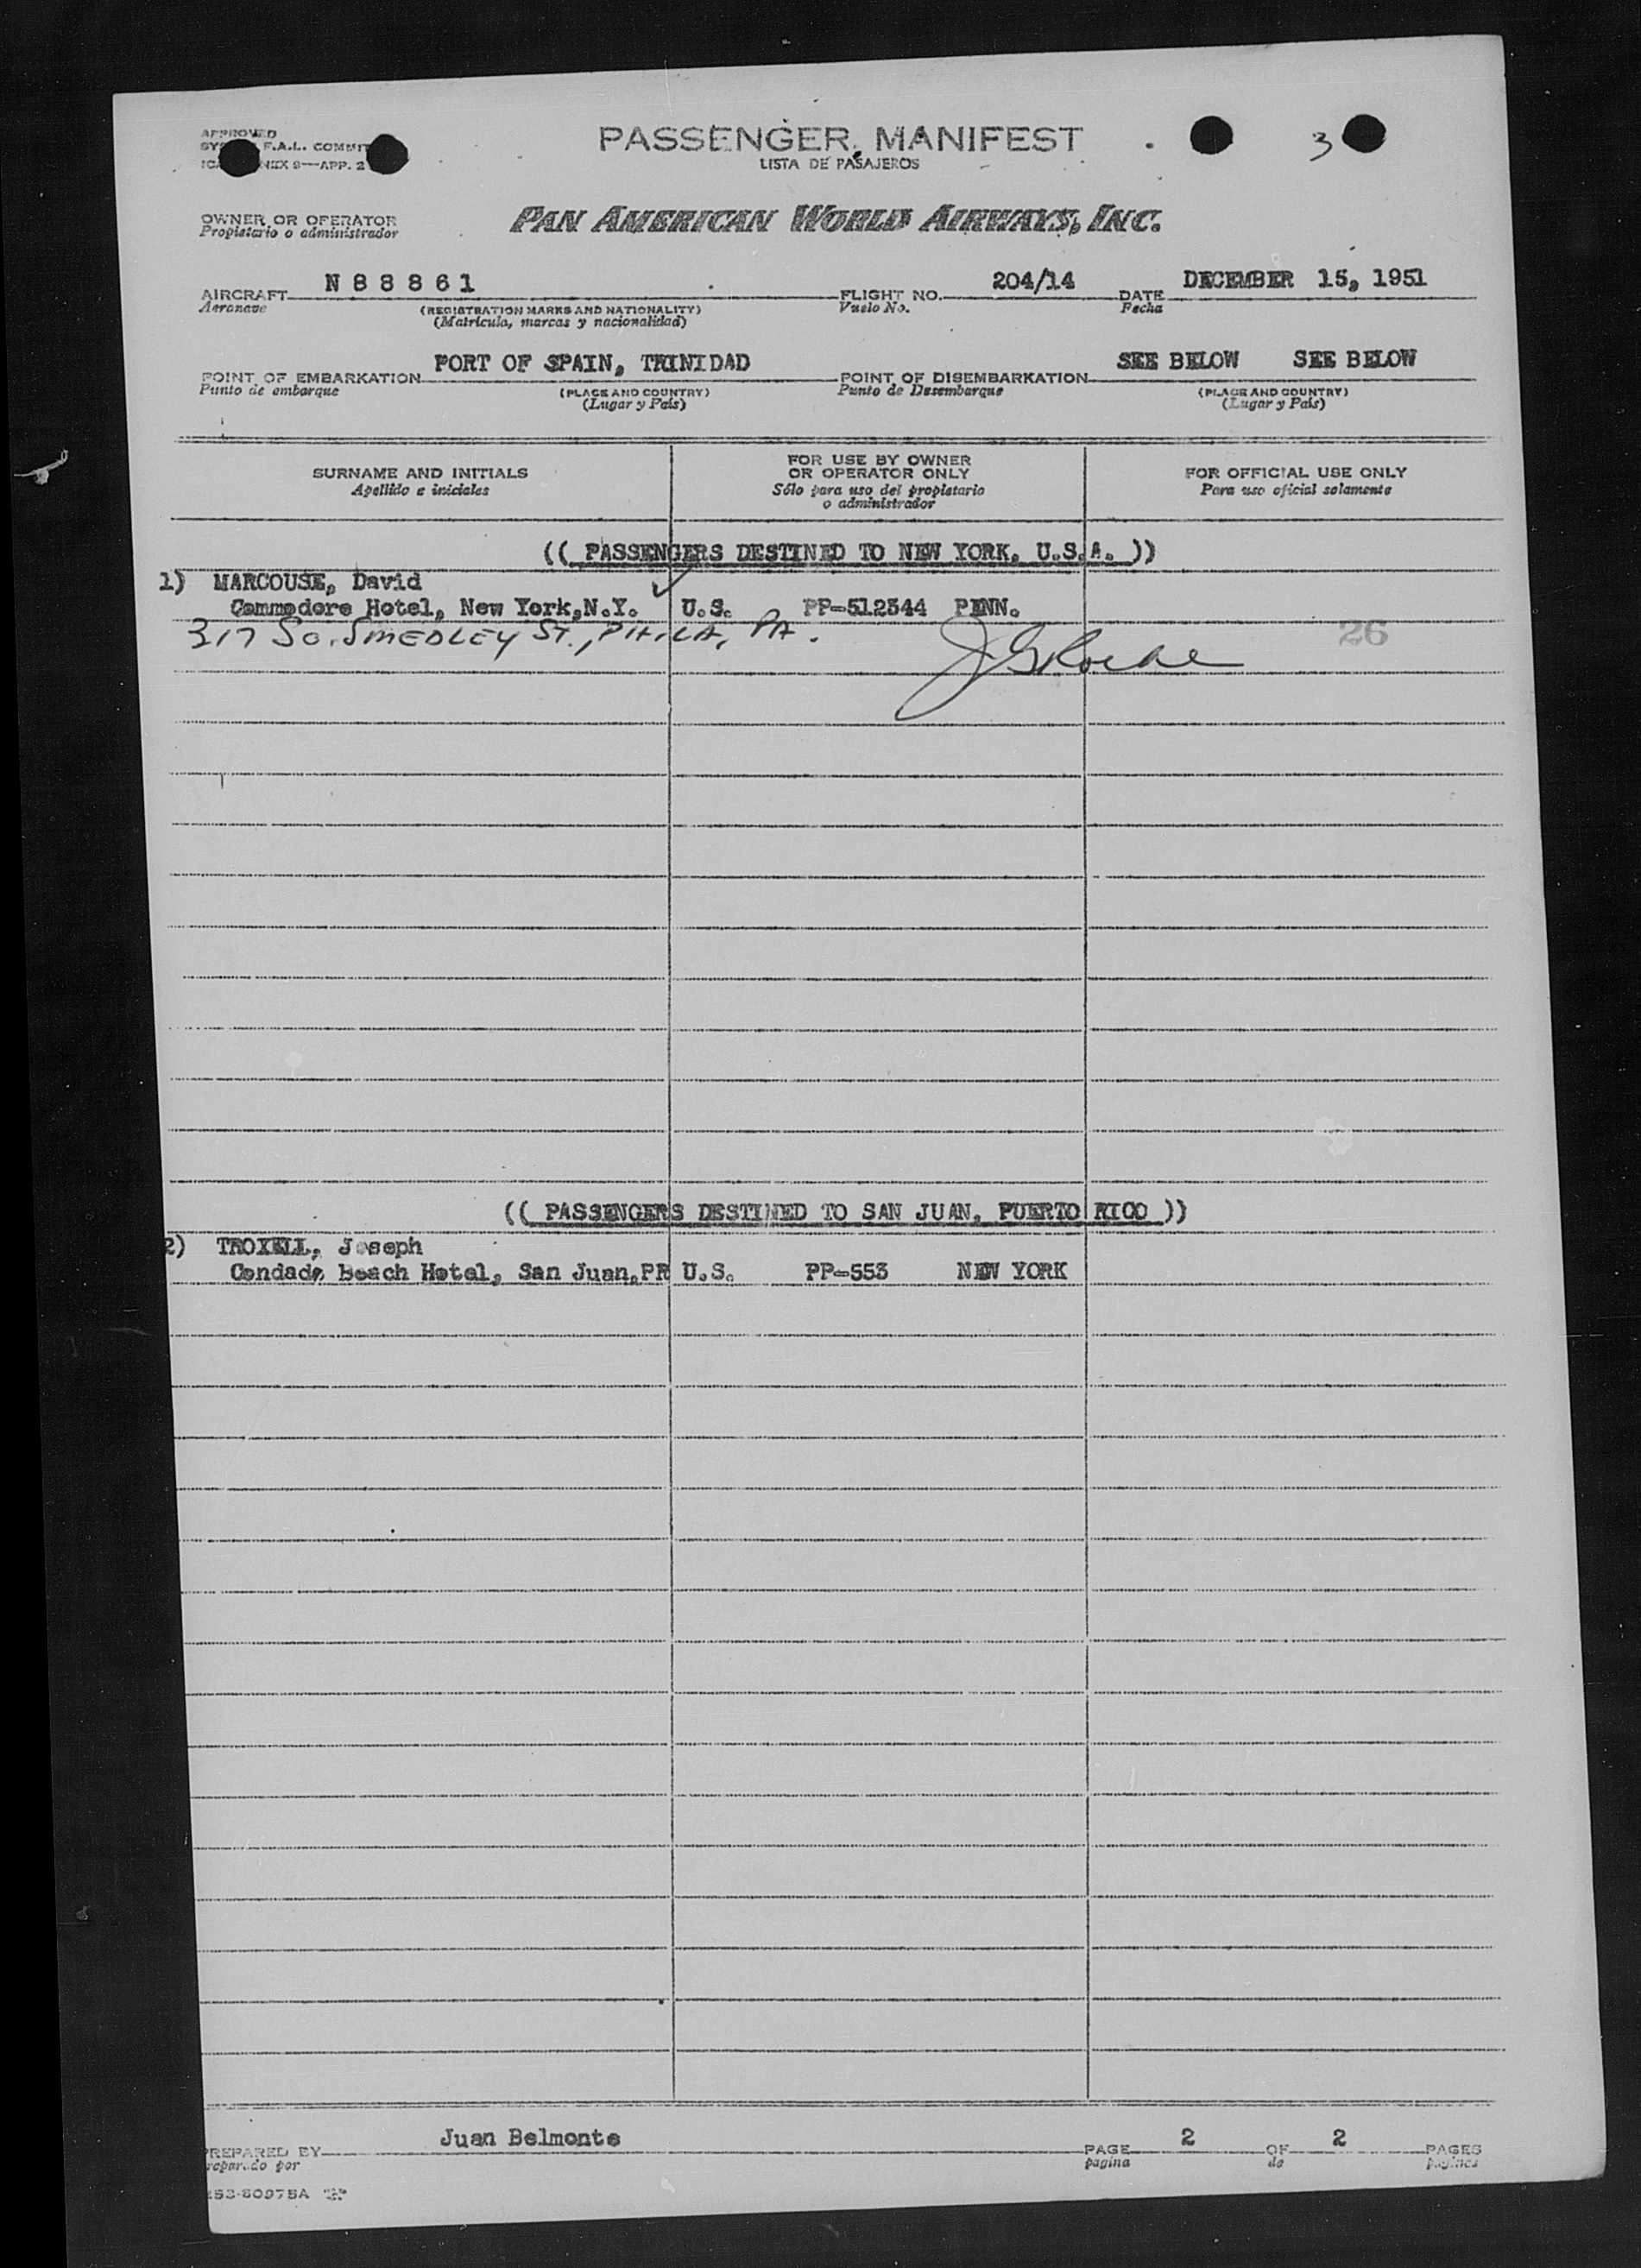 APPROVED
F.A.L.
APP. 2
PASSENGER MANIFEST
LISTA DE PASAJEROS
3
OWNER OR OPERATOR
Propietario o administrador
PAN AMERICAN WORLD AIRWAYS, INC.
AIRCRAFT N 8 8 8 6 1 FLIGHT NO. 204/14 DATE DECEMBER 15, 1951
Aeronave (REGISTRATION MARKS AND NATIONALITY) Vuelo No. Fecha
(Matrícula, marcas y nacionalidad)
POINT OF EMBARKATION PORT OF SPAIN, TRINIDAD POINT OF DISEMBARKATION SEE BELOW SEE BELOW
Punto de embarque (PLACE AND COUNTRY) Punto de Desembarque (PLACE AND COUNTRY)
(Lugar y País) (Lugar y País)
SURNAME AND INITIALS FOR USE BY OWNER OR OPERATOR ONLY FOR OFFICIAL USE ONLY
Apellido e iniciales Sólo para uso del propietario o administrador Para uso oficial solamente
(( PASSENGERS DESTINED TO NEW YORK, U.S.A. ))
1) MARCOUSE, David
Commodore Hotel, New York,N.Y. U.S. PP-512344 PENN.
317 SO. SMEDLEY ST., PHILA, PA.
26
(( PASSENGERS DESTINED TO SAN JUAN, PUERTO RICO ))
2) TROXELL, Joseph
Condado Beach Hotel, San Juan,PR U.S. PP-553 NEW YORK
PREPARED BY Juan Belmonte PAGE 2 OF 2 PAGES
por página de páginas